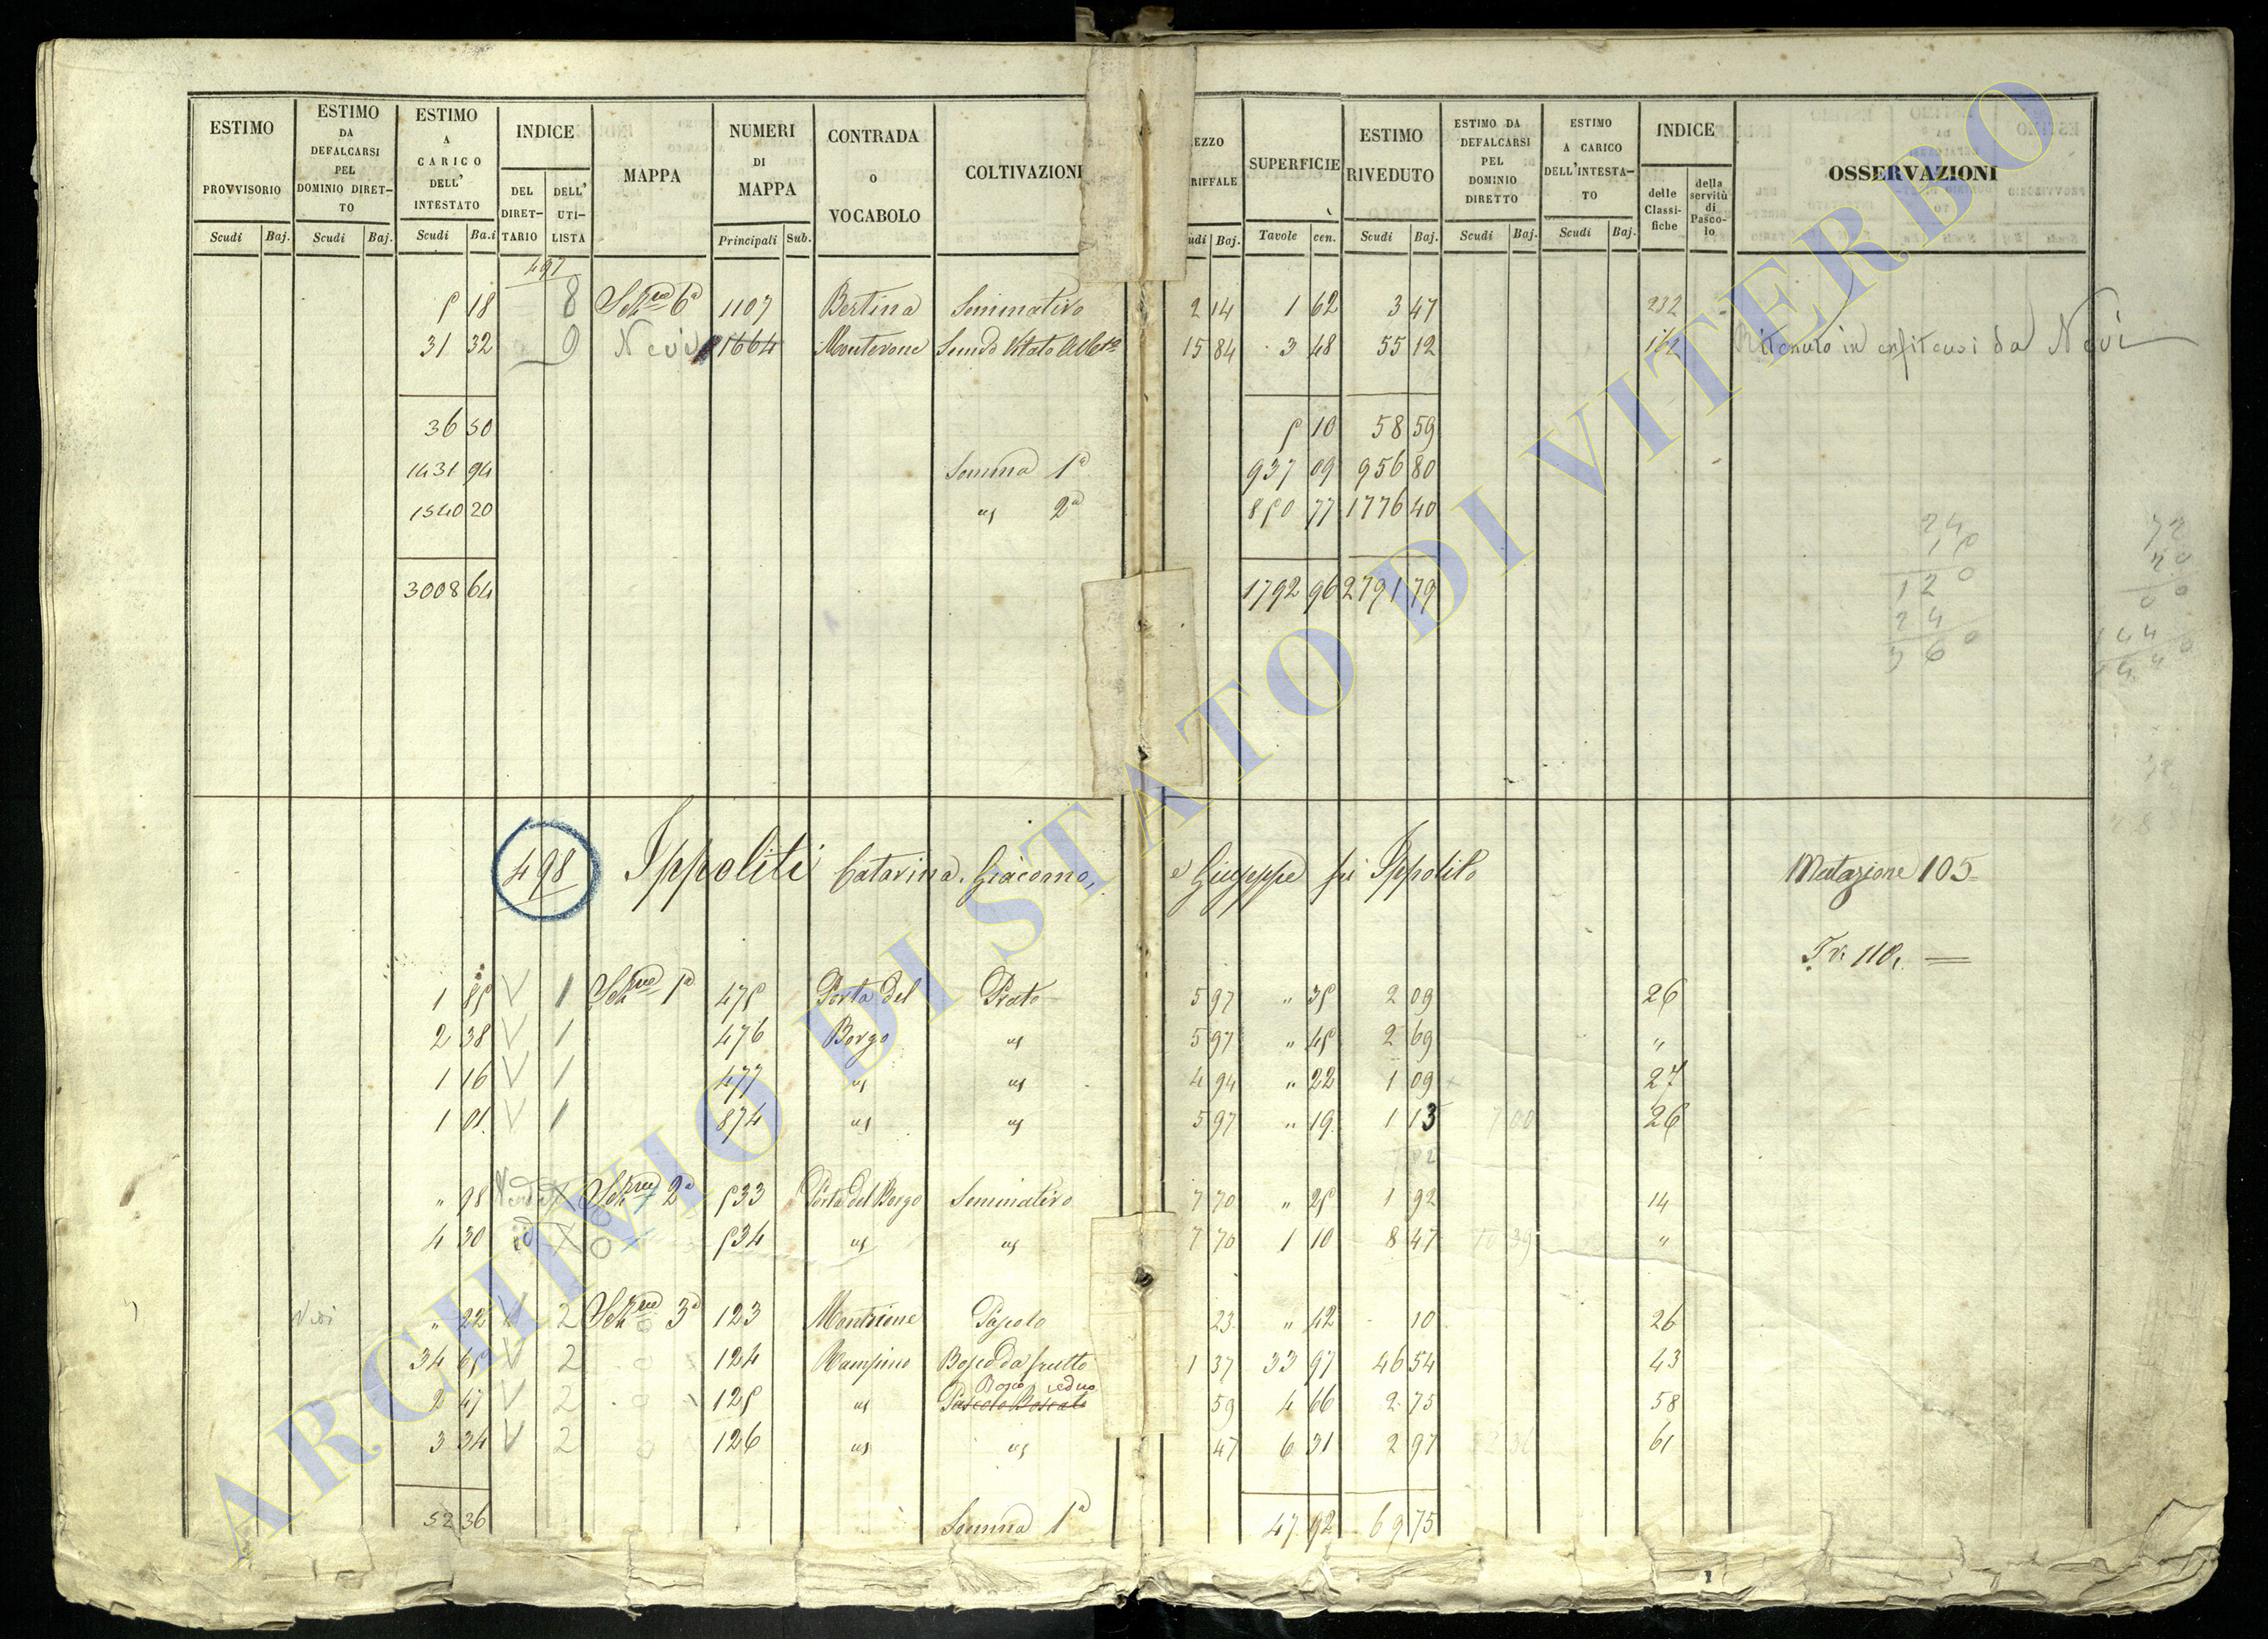 ESTIMO PROVVISORIO Scudi Baj.
ESTIMO DA DEFALCARSI PEL DOMINIO DIRETTO Scudi Baj.
ESTIMO A CARICO DELL' INTESTATO Scudi Ba.i
INDICE DEL DIRET-TARIO DELL' UTI-LISTA
MAPPA
NUMERI DI MAPPA Principali Sub.
CONTRADA O VOCABOLO
COLTIVAZIONE
EZZO RIFFALE udi Baj.
SUPERFICIE Tavole cen.
ESTIMO RIVEDUTO Scudi Baj.
ESTIMO DA DEFALCARSI PEL DOMINIO DIRETTO Scudi Baj.
ESTIMO A CARICO DELL'INTESTA-TO Scudi Baj.
INDICE delle Classi-fiche della servitù di Pasco-lo
OSSERVAZIONI
497
5 18 8 Sezne 6a 1107 Bertina Seminativo 2 14 1 62 3 47 232
31 32 9 Nevi 1664 Montevone Semvo Vitato 15 84 3 48 55 12 Ritenuto in enfiteusi da Nevi
36 50 5 10 58 59
1431 94 Somma 1a 937 09 956 80
1540 20 " 2a 850 77 1776 40
3008 64 1792 96 2791 79
498 Ippoliti Catarina, Giacomo, e Giuseppe fu Ippolito Mutazione 105
Tr. 110.
1 85 V 1 Sezne 1a 475 Porta del Prato 5 97 " 35 2 09 26
2 38 V 1 476 Borgo " 5 97 " 45 2 69 "
1 16 V 1 477 " " 4 94 " 22 1 09 27
1 01 V 1 874 " " 5 97 " 19 1 13 26
" 98 Sezne 2a 533 Porta del Borgo Seminativo 7 70 " 25 1 92 14
4 30 id X 534 " " 7 70 1 10 8 47 "
" 22 V 2 Sezne 3a 123 Montrione Pascolo 23 " 42 10 26
34 65 V 2 124 Rampino Bosco da frutto 1 37 33 97 46 54 43
Bosco ceduo
2 47 V 2 125 " Pascolo Boscato 59 4 66 2 75 58
3 34 V 2 126 " " 47 6 31 2 97 61
52 36 Somma 1a 47 92 69 75
ARCHIVIO DI STATO DI VITERBO